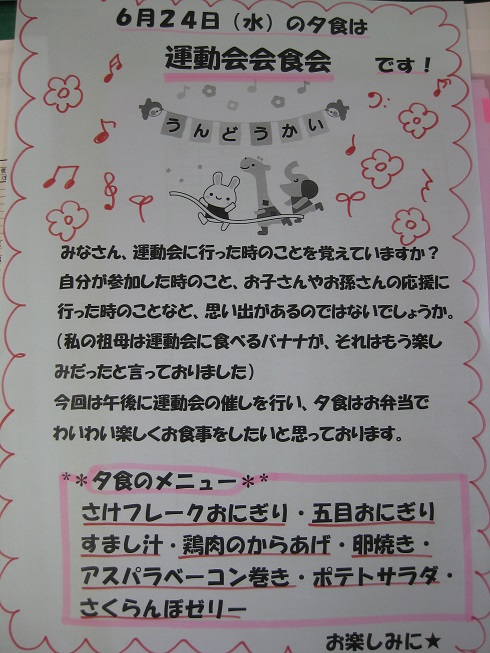 6月24日（水）の夕食は
運動会会食会 です！
うんどうかい
みなさん、運動会に行った時のことを覚えていますか？
自分が参加した時のこと、お子さんやお孫さんの応援に
行った時のことなど、思い出があるのではないでしょうか。
（私の祖母は運動会に食べるバナナが、それはもう楽し
みだったと言っておりました）
今回は午後に運動会の催しを行い、夕食はお弁当で
わいわい楽しくお食事をしたいと思っております。
**夕食のメニュー**
さけフレークおにぎり・五目おにぎり
すまし汁・鶏肉のからあげ・卵焼き・
アスパラベーコン巻き・ポテトサラダ・
さくらんぼゼリー
お楽しみに★